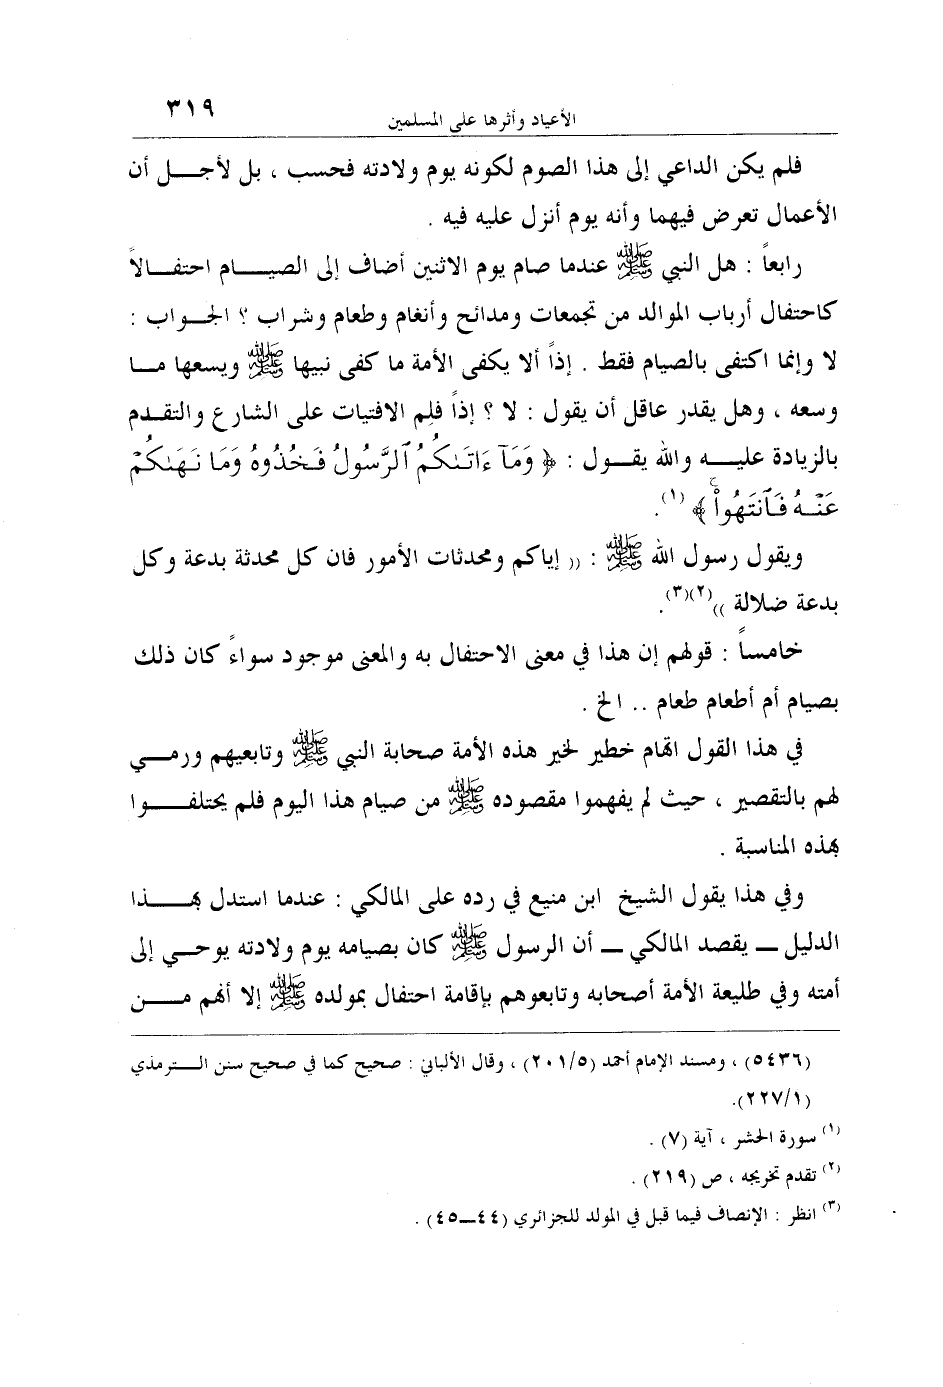 ٣١٩
الأعياد وأثرها على المسلمين
فلم يكن الداعي إلى هذا الصوم لكونه يوم ولادته فحسب ، بل لأجـــل أن
الأعمال تعرض فيهما وأنه يوم أنزل عليه فيه .
رابعاً : هل النبي ﷺ عندما صام يوم الاثنين أضاف إلى الصيـــام احتفـــالاً
كاحتفال أرباب الموالد من تجمعات ومدائح وأنغام وطعام وشراب ؟ الجـواب :
لا وإنما اكتفى بالصيام فقط . إذاً ألا يكفى الأمة ما كفى نبيها ﷺ ويسعها مـــا
وسعه ، وهل يقدر عاقل أن يقول : لا ؟ إذاً فلم الافتيات على الشارع والتقدم
بالزيادة عليـــه والله يقـــول : ﴿ وَمَآ ءَاتَىٰكُمُ ٱلرَّسُولُ فَخُذُوهُ وَمَا نَهَىٰكُمْ
عَنْهُ فَٱنتَهُواْ ۚ ﴾ (١).
ويقول رسول الله ﷺ : (( إياكم ومحدثات الأمور فان كل محدثة بدعة وكل
بدعة ضلالة ))(٢)(٣).
خامساً : قولهم إن هذا في معنى الاحتفال به والمعنى موجود سواءً كان ذلك
بصيام أم أطعام طعام .. الخ .
في هذا القول اتهام خطير لخير هذه الأمة صحابة النبي ﷺ وتابعيهم ورمـــي
لهم بالتقصير ، حيث لم يفهموا مقصوده ﷺ من صيام هذا اليوم فلم يحتلفـــوا
بهذه المناسبة .
وفي هذا يقول الشيخ ابن منيع في رده على المالكي : عندما استدل بهـــذا
الدليل ــ يقصد المالكي ــ أن الرسول ﷺ كان بصيامه يوم ولادته يوحـــي إلى
أمته وفي طليعة الأمة أصحابه وتابعوهم بإقامة احتفال بمولده ﷺ إلا أنهم مـــن
(٥٤٣٦) ، ومسند الإمام أحمد (٢٠١/٥) ، وقال الألباني : صحيح كما في صحيح سنن الـــترمذي
(٢٢٧/١).
(١) سورة الحشر ، آية (٧) .
(٢) تقدم تخريجه ، ص (٢١٩) .
(٣) انظر : الإنصاف فيما قبل في المولد للجزائري (٤٤ــ٤٥) .